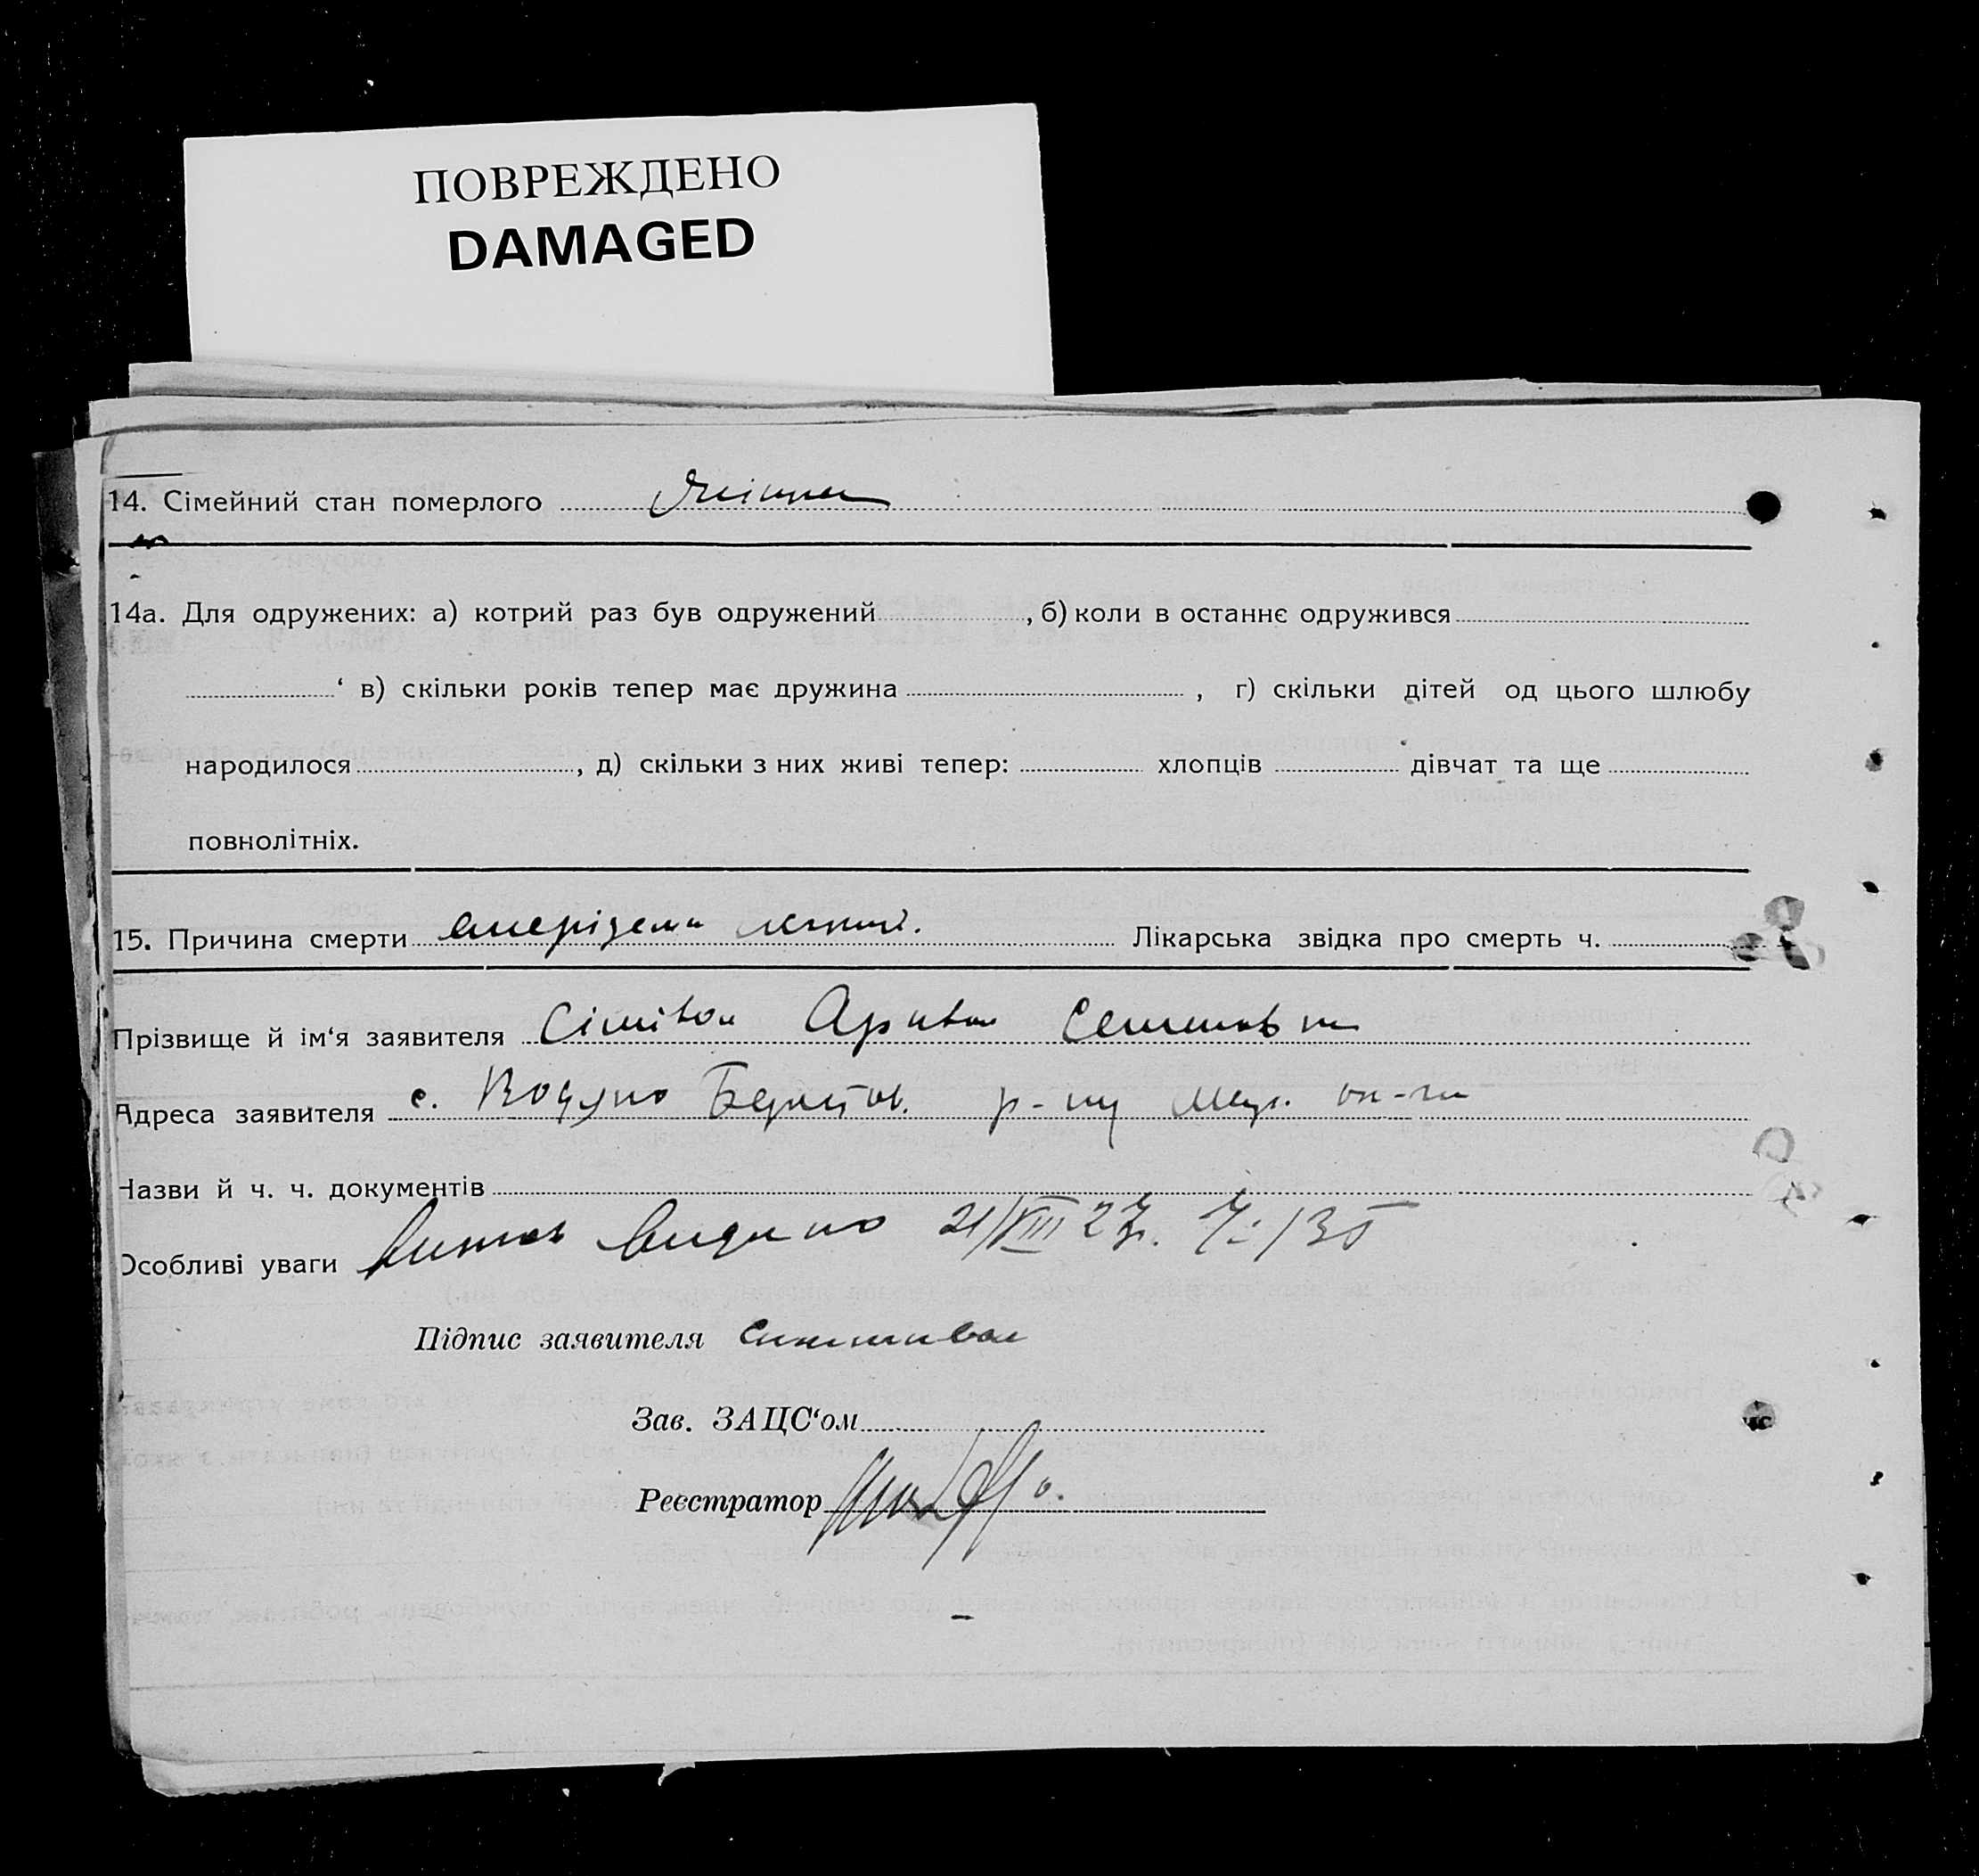 ПОВРЕЖДЕНО
DAMAGED
14. Сімейний стан померлого
14а. Для одружених: а) котрий раз був одружений , б) коли в останнє одружився
‘ в) скільки років тепер має дружина , г) скільки дітей од цього шлюбу
народилося , д) скільки з них живі тепер: хлопців дівчат та ще
повнолітніх.
15. Причина смерти Лікарська звідка про смерть ч.
Прізвище й ім‘я заявителя
Адреса заявителя с. р-ну
Назви й ч. ч. документів
Особливі уваги 21/VIII 27р. Ч: 135
Підпис заявителя
Зав. ЗАЦС‘ом
Реєстратор